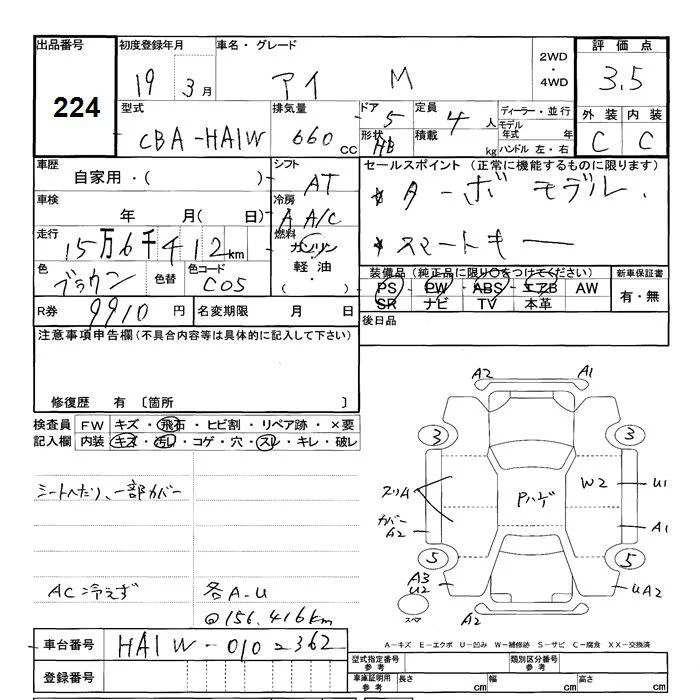 出品番号
224
初度登録年月
19 3月
車名・グレード
アイ M
2WD
・
4WD
評価点
3.5
外装 内装
C C
型式
CBA-HA1W
排気量
660cc
ドア
5
形状
HB
定員
4人
積載
kg
ディーラー・並行
モデル年式 年
ハンドル 左・右
車歴
自家用・( )
シフト
AT
セールスポイント (正常に機能するものに限ります)
* ターボモデル.
* スマートキー
車検
年 月( 日)
冷房
A A/C
走行
15万6千412km
燃料
ガソリン
軽油・
( )
色
ブラウン
色替
色コード
C05
装備品 (純正品に限り○をつけてください)
PS PW ABS エアB AW
SR ナビ TV 本革
新車保証書
有・無
R券 9910円
名変期限 月 日
後日品
注意事項申告欄(不具合内容等は具体的に記入して下さい)
修復歴 有 〔箇所 〕
検査員
記入欄
FW キズ・飛石・ヒビ割・リペア跡・×要
内装 キズ・汚レ・コゲ・穴・スレ・キレ・破レ
シートへたり、一部カバー
AC冷えず
各A-U
@156,416km
A2 A1
3 3
スリA
Pハゲ
W2
U1
カバー
A2
A1
5 5
A3
U2
UA2
スペア
A2
車台番号 HA1W-0102362
登録番号
A-キズ E-エクボ U-凹み W-補修跡 S-サビ C-腐食 XX-交換済
型式指定番号
参考
類別区分番号
参考
車庫証明用
参考
長さ cm
幅 cm
高さ cm